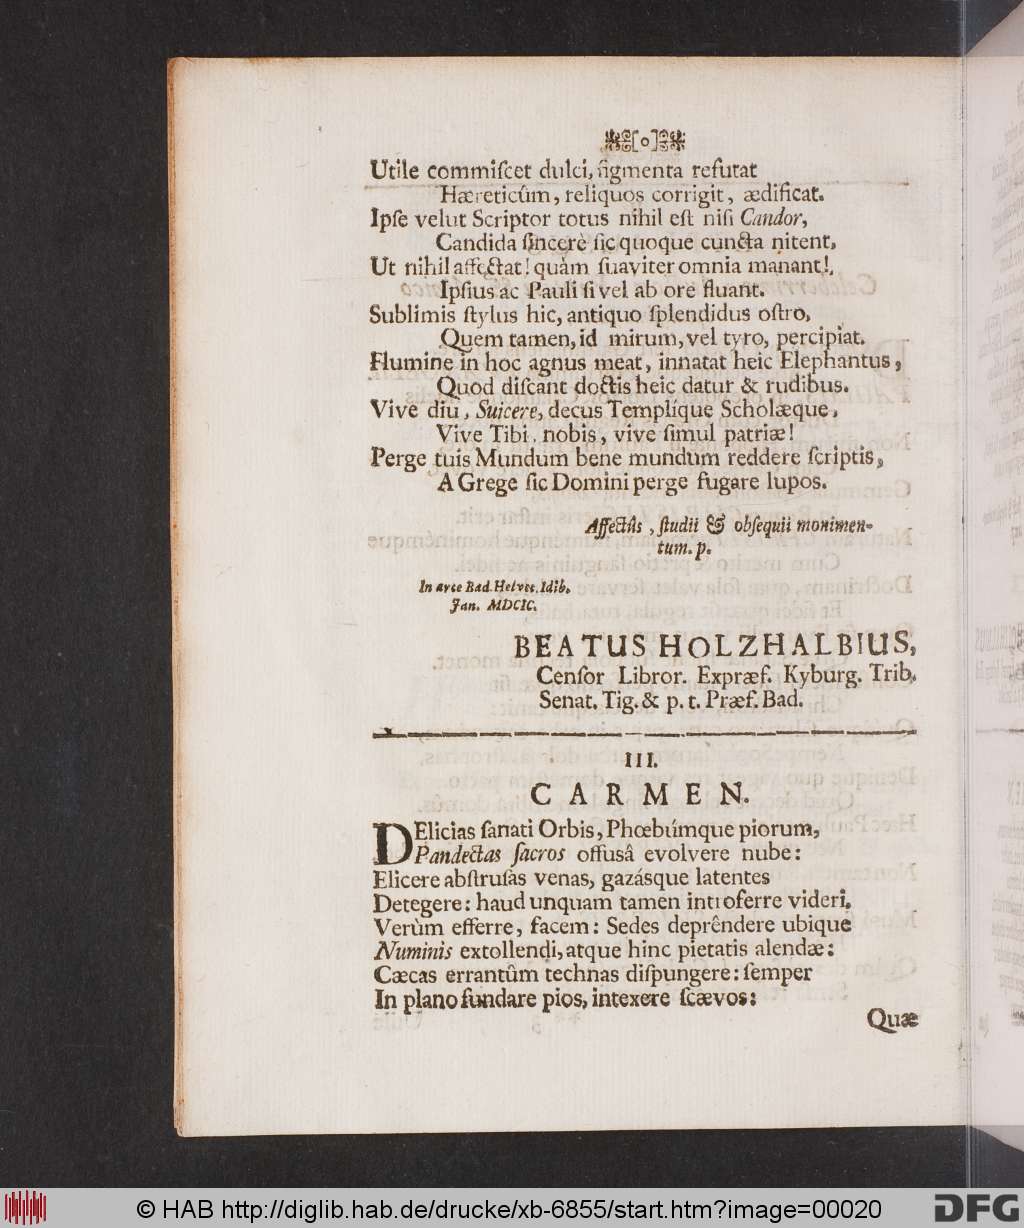 [o]
Utile commiſcet dulci, figmenta refutat
Hæreticûm, reliquos corrigit, ædificat.
Ipſe velut Scriptor totus nihil eſt niſi Candor,
Candida ſincere ſic quoque cuncta nitent,
Ut nihil affectat! quàm ſuaviter omnia manant!
Ipſius ac Pauli ſi vel ab ore fluant.
Sublimis ſtylus hic, antiquo ſplendidus oſtro,
Quem tamen, id mirum, vel tyro, percipiat.
Flumine in hoc agnus meat, innatat heic Elephantus,
Quod diſcant doctis heic datur & rudibus.
Vive diu, Suicere, decus Templíque Scholæque,
Vive Tibi, nobis, vive ſimul patriæ!
Perge tuis Mundum bene mundum reddere ſcriptis,
A Grege ſic Domini perge fugare lupos.
Affectûs, ſtudii & obſequii monimen-
tum. p.
In arce Bad. Helvet. Idib.
Jan. MDCIC.
BEATUS HOLZHALBIUS,
Cenſor Libror. Expræf. Kyburg. Trib.
Senat. Tig. & p. t. Præf. Bad.
III.
CARMEN.
DElicias ſanati Orbis, Phœbúmque piorum,
Pandectas ſacros offusâ evolvere nube:
Elicere abſtruſas venas, gazásque latentes
Detegere: haud unquam tamen introferre videri,
Verùm efferre, facem: Sedes deprêndere ubique
Numinis extollendi, atque hinc pietatis alendæ:
Cæcas errantûm technas diſpungere: ſemper
In plano fundare pios, intexere ſcævos:
Quæ
© HAB http://diglib.hab.de/drucke/xb-6855/start.htm?image=00020
DFG